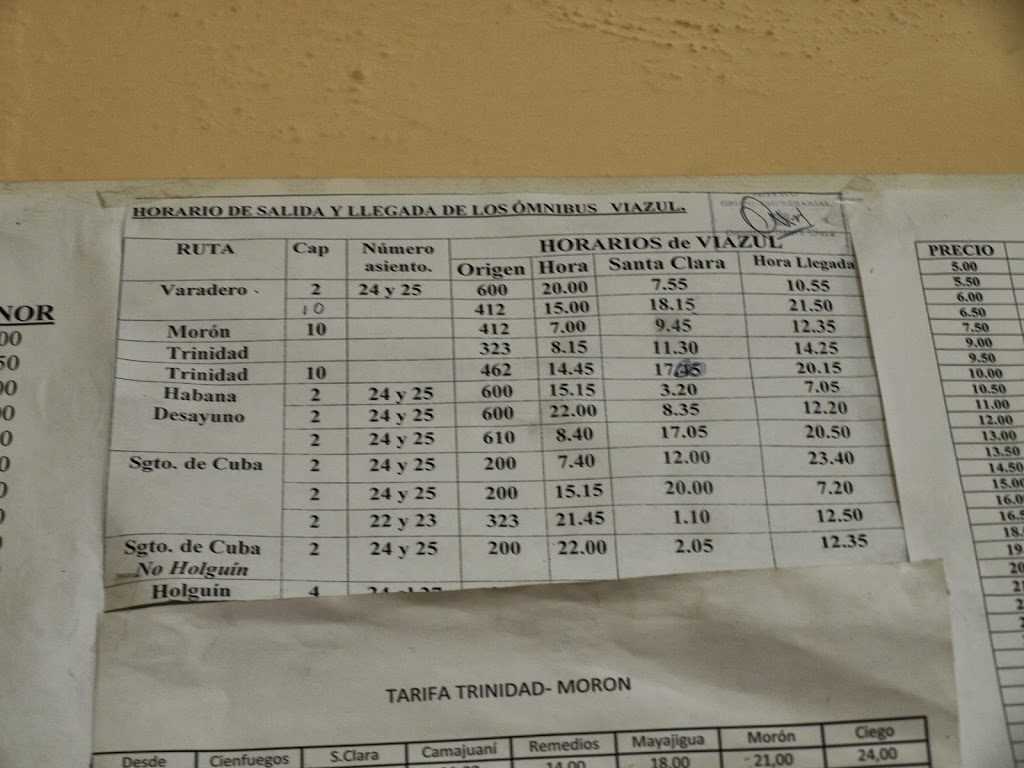 HORARIO DE SALIDA Y LLEGADA DE LOS ÓMNIBUS VIAZUL.
RUTA Cap Número asiento. HORARIOS de VIAZUL
Origen Hora Santa Clara Hora Llegada
Varadero 2 24 y 25 600 20.00 7.55 10.55
10 412 15.00 18.15 21.50
Morón 10 412 7.00 9.45 12.35
Trinidad 323 8.15 11.30 14.25
Trinidad 10 462 14.45 20.15
Habana 2 24 y 25 600 15.15 3.20 7.05
Desayuno 2 24 y 25 600 22.00 8.35 12.20
2 24 y 25 610 8.40 17.05 20.50
Sgto. de Cuba 2 24 y 25 200 7.40 12.00 23.40
2 24 y 25 200 15.15 20.00 7.20
2 22 y 23 323 21.45 1.10 12.50
Sgto. de Cuba 2 24 y 25 200 22.00 2.05 12.35
No Holguín
Holguín 4
TARIFA TRINIDAD- MORON
Desde Cienfuegos S.Clara Camajuaní Remedios Mayajigua Morón Ciego
14.00 18.00 21,00 24,00
NOR
PRECIO
5.00
5.50
6.00
6.50
7.50
9.00
9.50
10.00
10.50
11.00
12.00
13.00
13.50
14.50
15.00